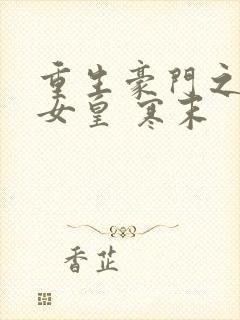 重生豪門之
女皇 寒未
香芷